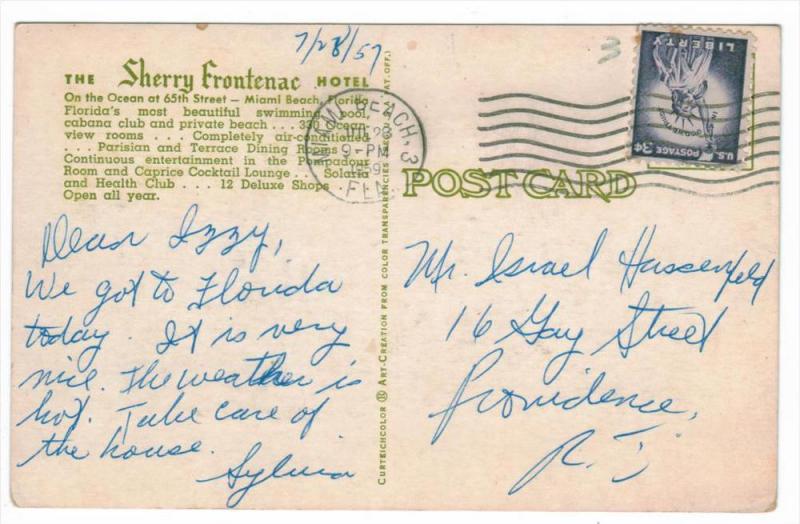 7/28/57
THE Sherry Frontenac HOTEL
On the Ocean at 65th Street — Miami Beach, Florida
Florida's most beautiful swimming pool,
cabana club and private beach . . . 330 ocean-
view rooms . . . Completely air-conditioned
. . . Parisian and Terrace Dining Rooms
Continuous entertainment in the Pompadour
Room and Caprice Cocktail Lounge . . . Solaria
and Health Club . . . 12 Deluxe Shops
Open all year.
Dear Izzy,
We got to Florida
today. It is very
nice. The weather is
hot. Take care of
the house.
Sylvia
CURTEICHCOLOR ® ART-CREATION FROM COLOR TRANSPARENCIES PAT. OFF.)
MIAMI BEACH, 3
28
9-PM
FLA
3
LIBERTY
IN GOD WE TRUST
U.S. POSTAGE 3¢
POST CARD
Mr. Israel Hassenfeld
16 Gay Street
Providence,
R. I.